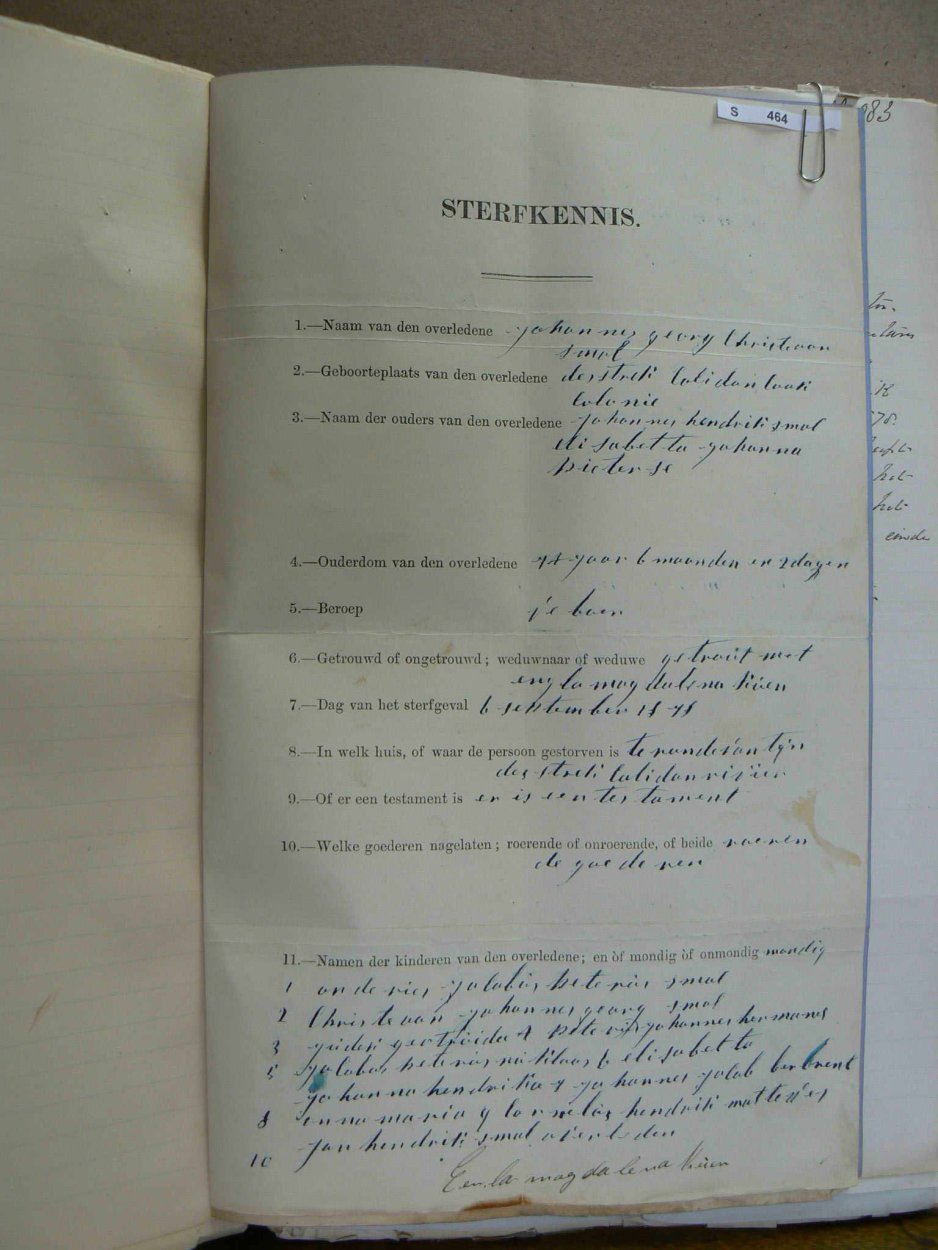 S 464
83
STERFKENNIS.
1.—Naam van den overledene johannes georg Christiaan
smal
2.—Geboorteplaats van den overledene destrek
colonie
3.—Naam der ouders van den overledene johannes hendrik smal
elisabetta johanna
pieterse
4.—Ouderdom van den overledene jaar 6 maanden en 2 dagen
5.—Beroep boer
6.—Getrouwd of ongetrouwd; weduwnaar of weduwe getrout met
magdalena
7.—Dag van het sterfgeval 6 september 1878
8.—In welk huis, of waar de persoon gestorven is
destrek calidonrivier
9.—Of er een testament is er is een testament
10.—Welke goederen nagelaten; roerende of onroerende, of beide roeren
de goederen
11.—Namen der kinderen van den overledene; en òf mondig òf onmondig mondig
1 andries jakobus peterus smal
2 Christiaan johannes georg smal
3 gertruida 4 peterus johannes hermanes
5 jakobus peterus niklaas 6 elisabetta
johanna hendrika 7 johannes jakob
8 anna maria 9 cornelis hendrik
10 jan hendrik smal overleden
magdalena
einde
het
het